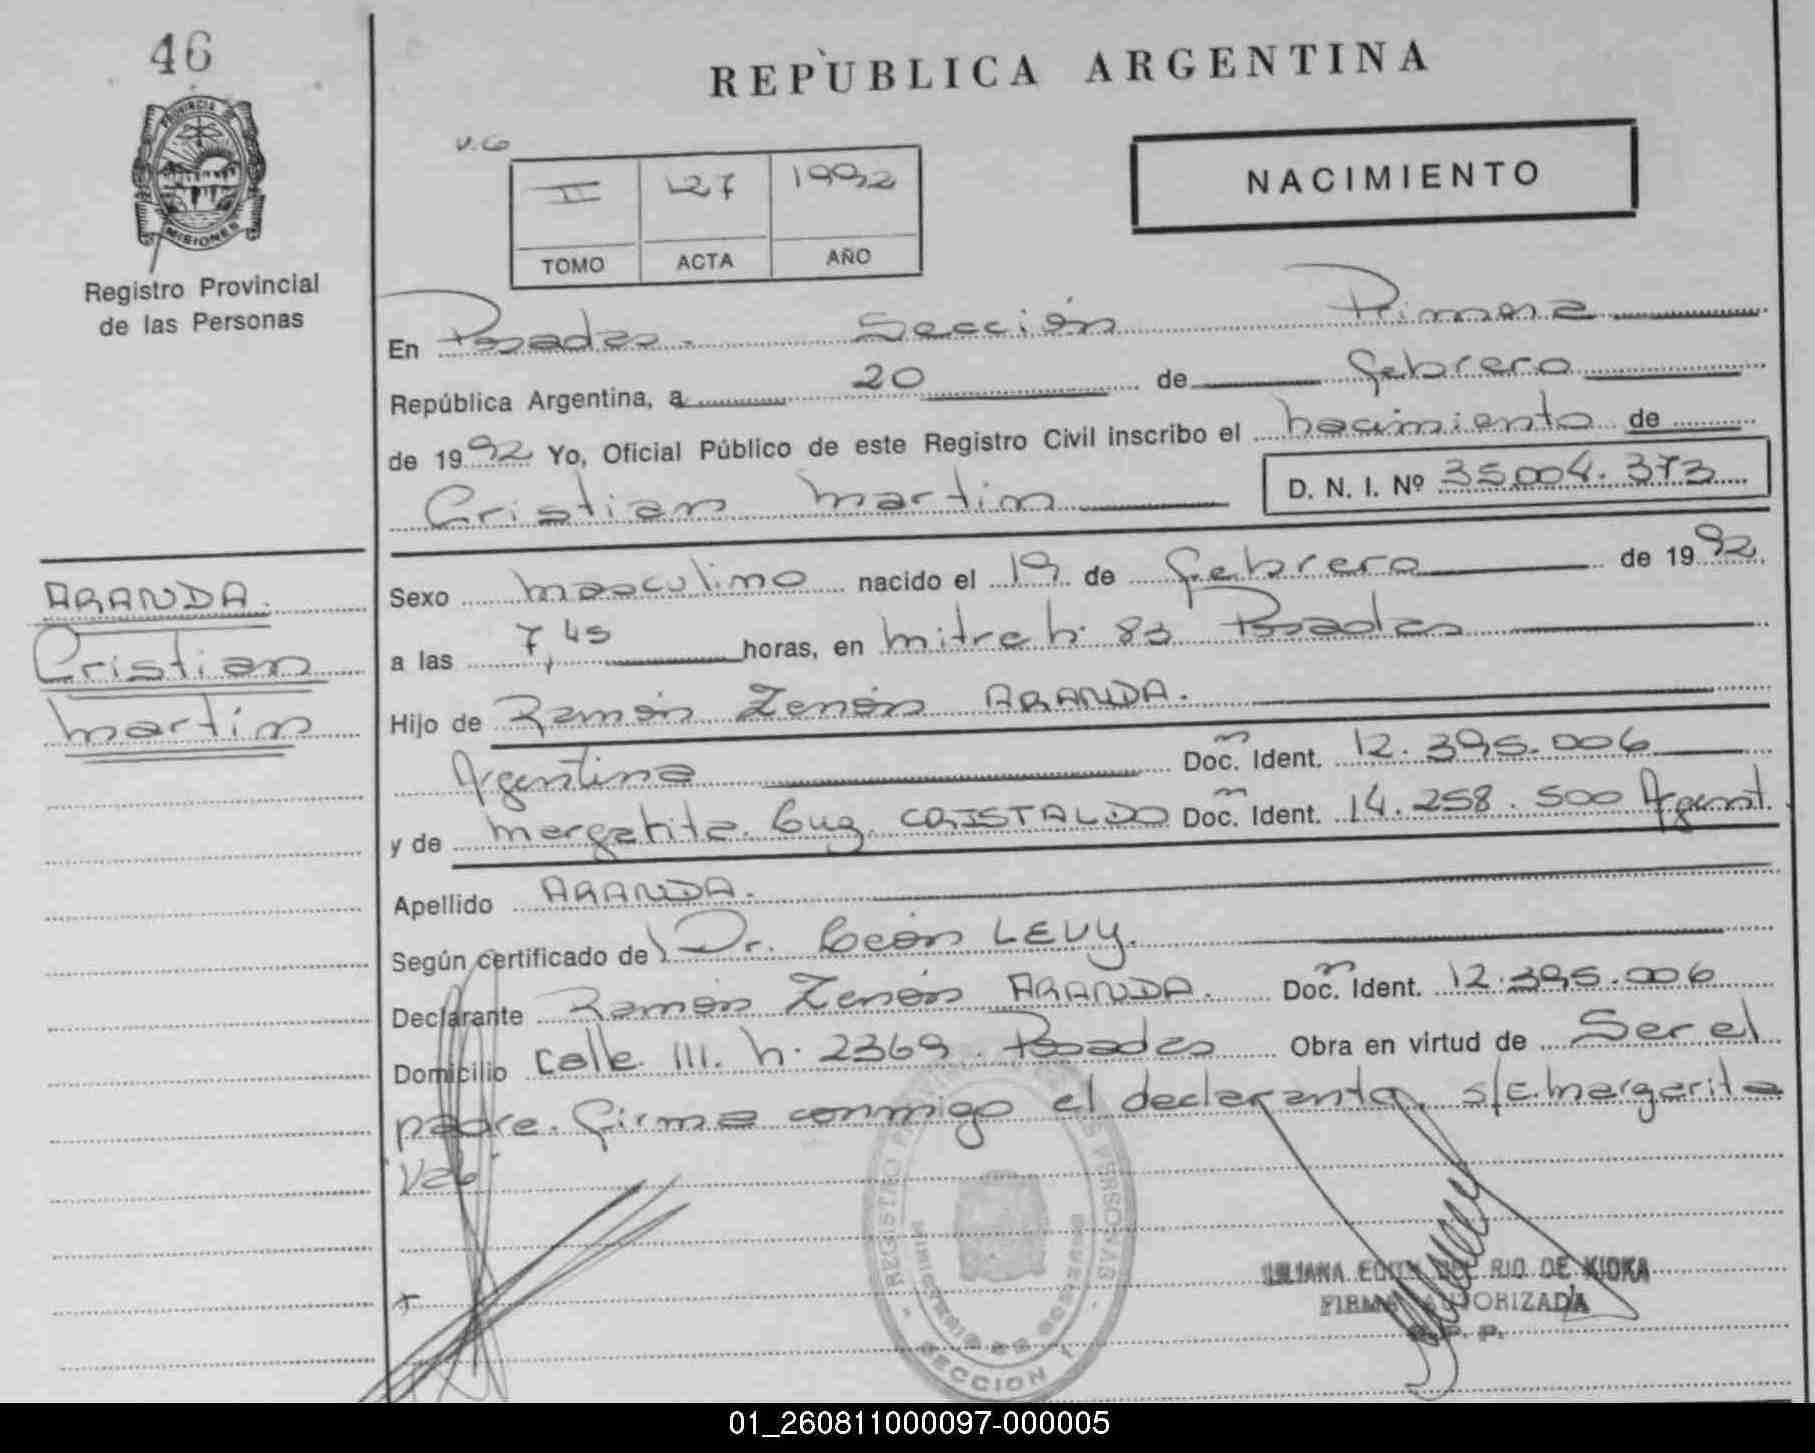 46
REPÚBLICA ARGENTINA
PROVINCIA DE MISIONES
Registro Provincial
de las Personas
II 127 1992
TOMO ACTA AÑO
NACIMIENTO
En Posadas. Sección Primera
República Argentina, a 20 de febrero
de 1992 Yo, Oficial Público de este Registro Civil inscribo el nacimiento de
Cristian Martin D. N. I. Nº 35.004.373
ARANDA.
Cristian
Martin
Sexo masculino nacido el 19 de febrero de 1992.
a las 7,45 horas, en Mitre h. 83 Posadas
Hijo de Ramón Zenón ARANDA.
Argentina Doc. Ident. 12.395.006
y de Margarita Luz CRISTALDO Doc. Ident. 14.258.500 Argent.
Apellido ARANDA.
Según certificado de Dr. León LEVY.
Declarante Ramón Zenón ARANDA. Doc. Ident. 12.395.006
Domicilio Calle 111. h. 2369. Posadas Obra en virtud de Ser el
padre. Firma conmigo el declarante s/E. Margarita
REGISTRO PERSONAS
MINISTERIO DE GOBIERNO
SECCION 1
LILIANA EDITH DEL RIO DE KIOKA
FIRMA AUTORIZADA
R. P. P.
01_260811000097-000005